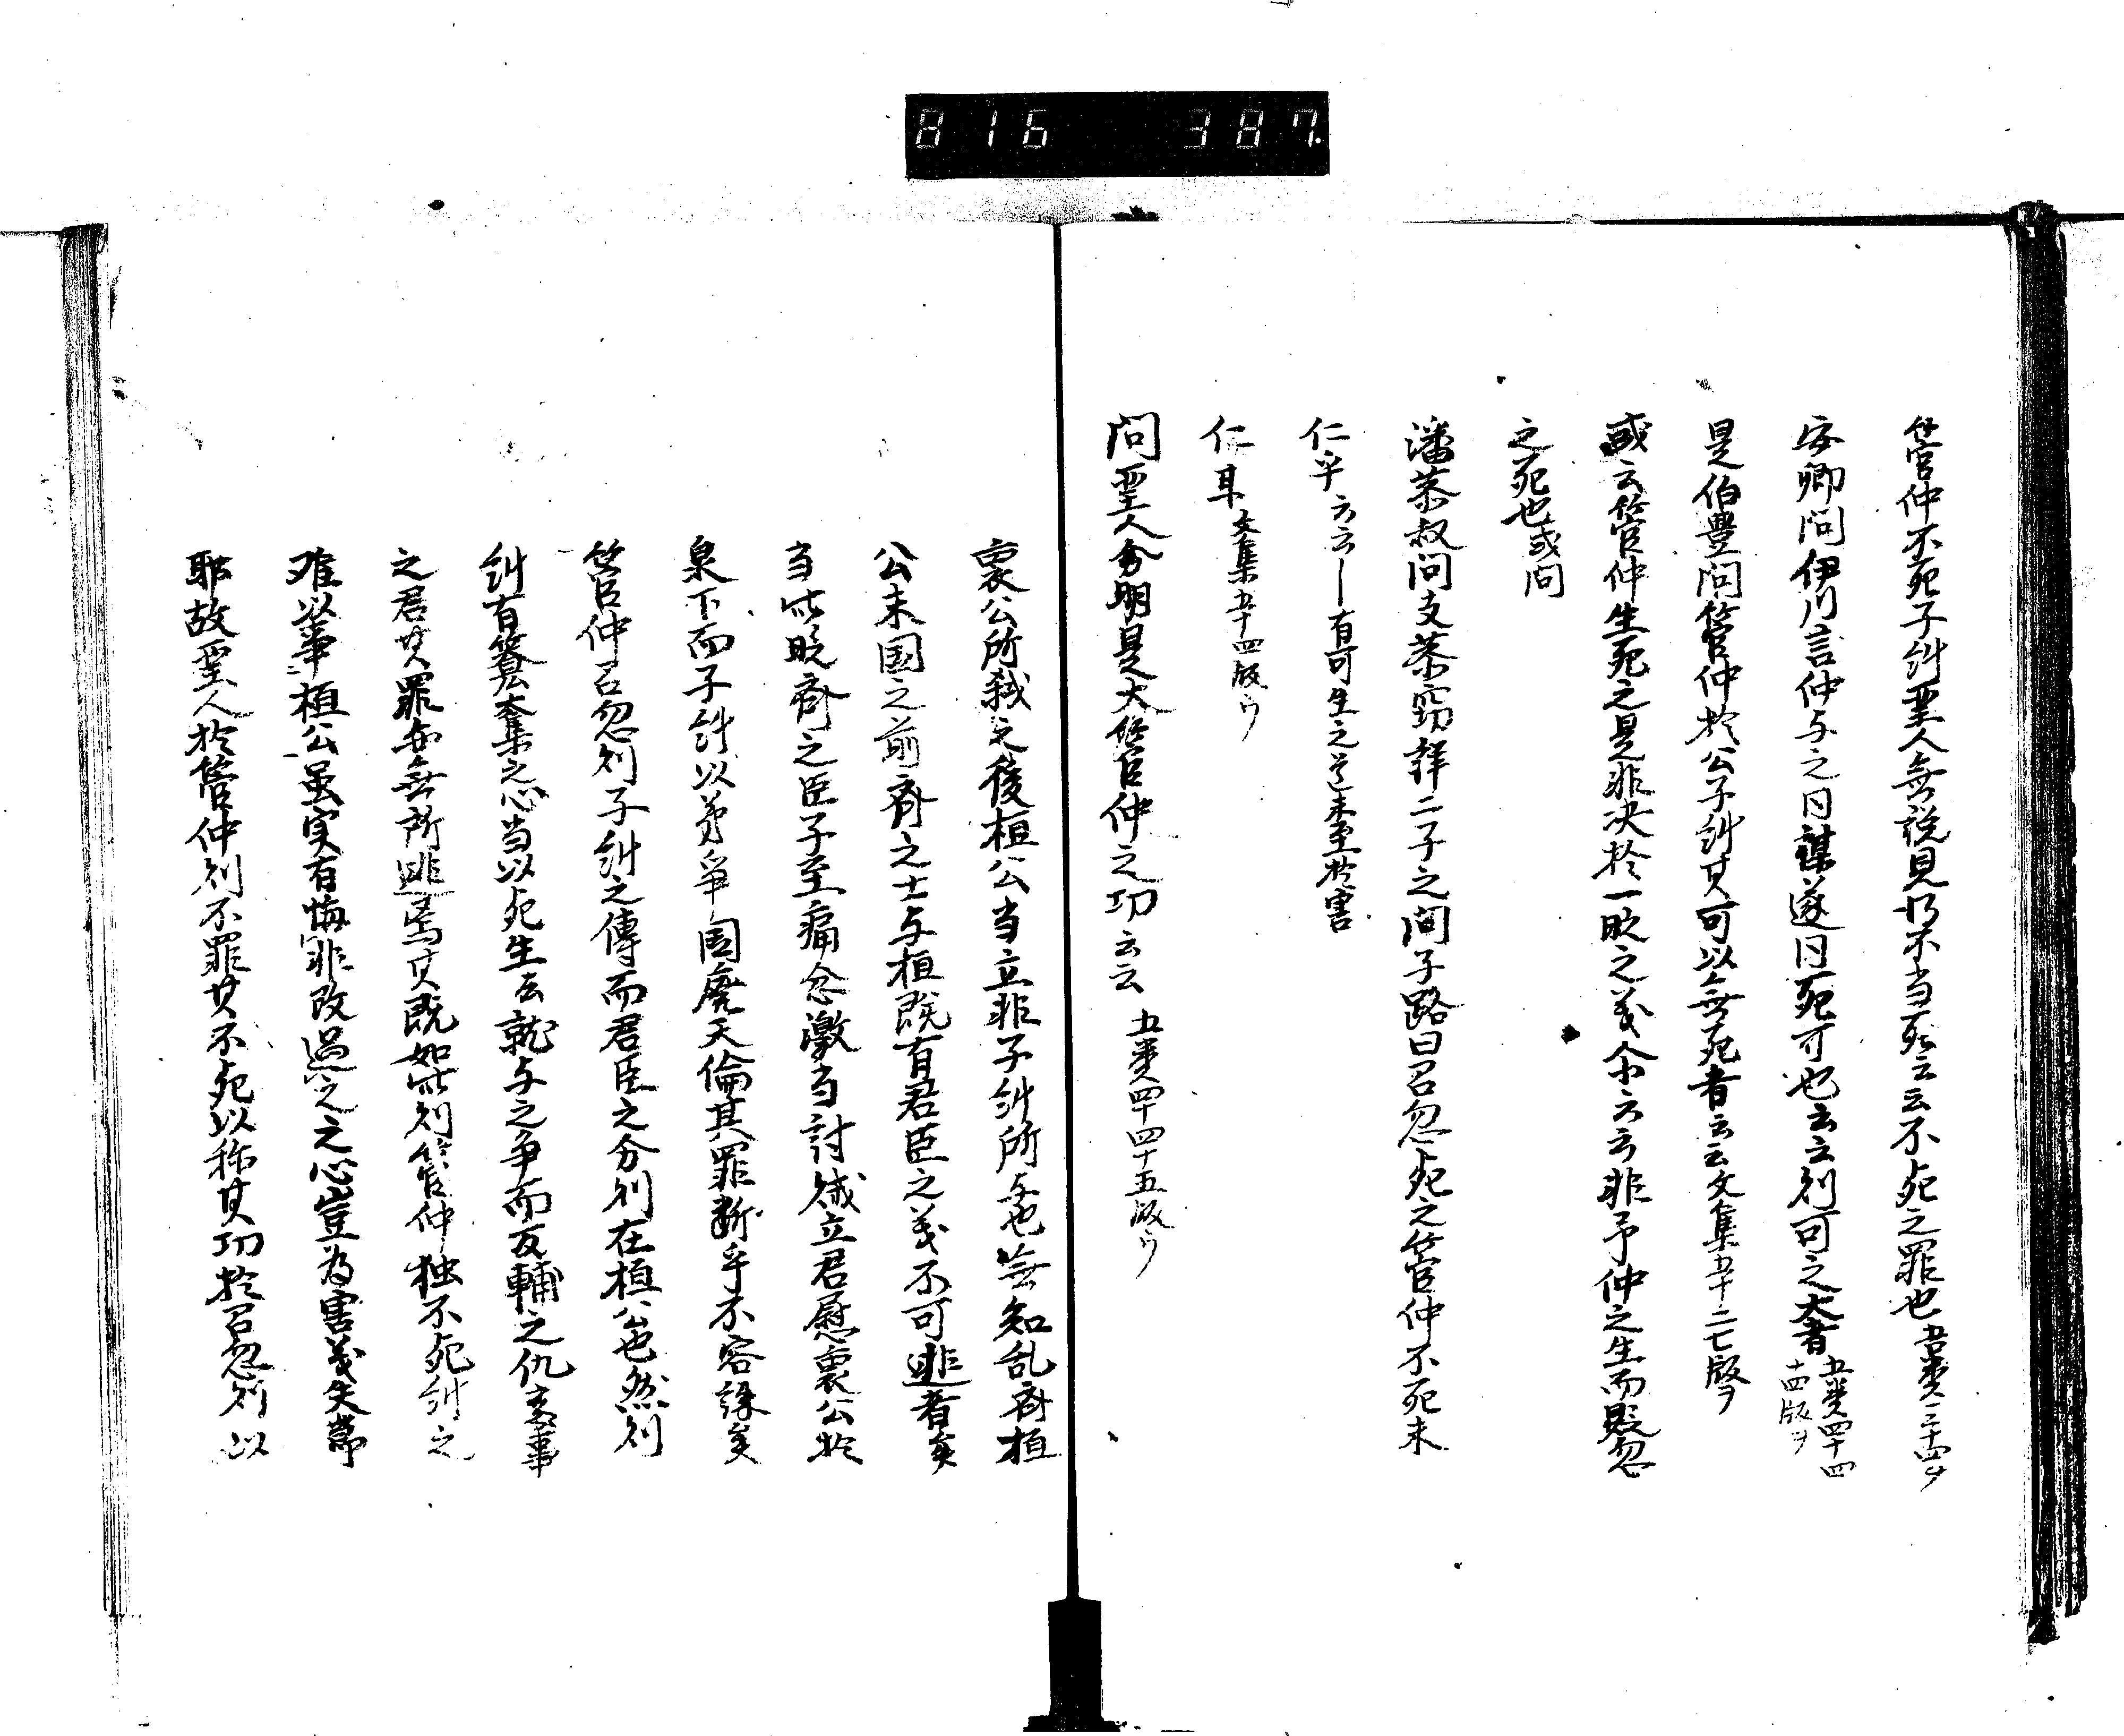 816 387.
管仲不死子糾聖人無説見得不当死云云不死之罪也 五十四ヲ
安卿問伊川言仲与之同謀遂同死可也云云則可之大者 五類四十四 十四版ヲ
是伯豊問管仲於公子糾其可以無死者云云文集五十二七版ヲ
或云管仲生死之是非决於一时之義今云云非予仲之生而貶忽
之死也或問
潘恭叔問支恭窃詳二子之問子路曰召忽死之管仲不死未
仁乎云云ー有可生之道未至於害
仁耳 文集五十四版ウ
問聖人分明是大管仲之功云云 五類四十四十五版ウ
襄公所弑之後桓公当立非子糾所与也無知乱斉桓
公未国之前斉之士与桓既有君臣之義不可逃者矣
当此时斉之臣子至痛念激当討賊立君慰襄公於
泉下而子糾以弟争国廃天倫其罪断乎不容誅矣
管仲召忽則子糾之傅而君臣之分則在桓公也然則
糾有簒奪之心当以死生去就与之争而反輔之仇事
之君其罪亦無所逃焉其既如此則管仲独不死糾之
难以事桓公虽実有悔非改過之之心豈為害義失節
耶故聖人於管仲則不罪其不死以称其功於召忽則以